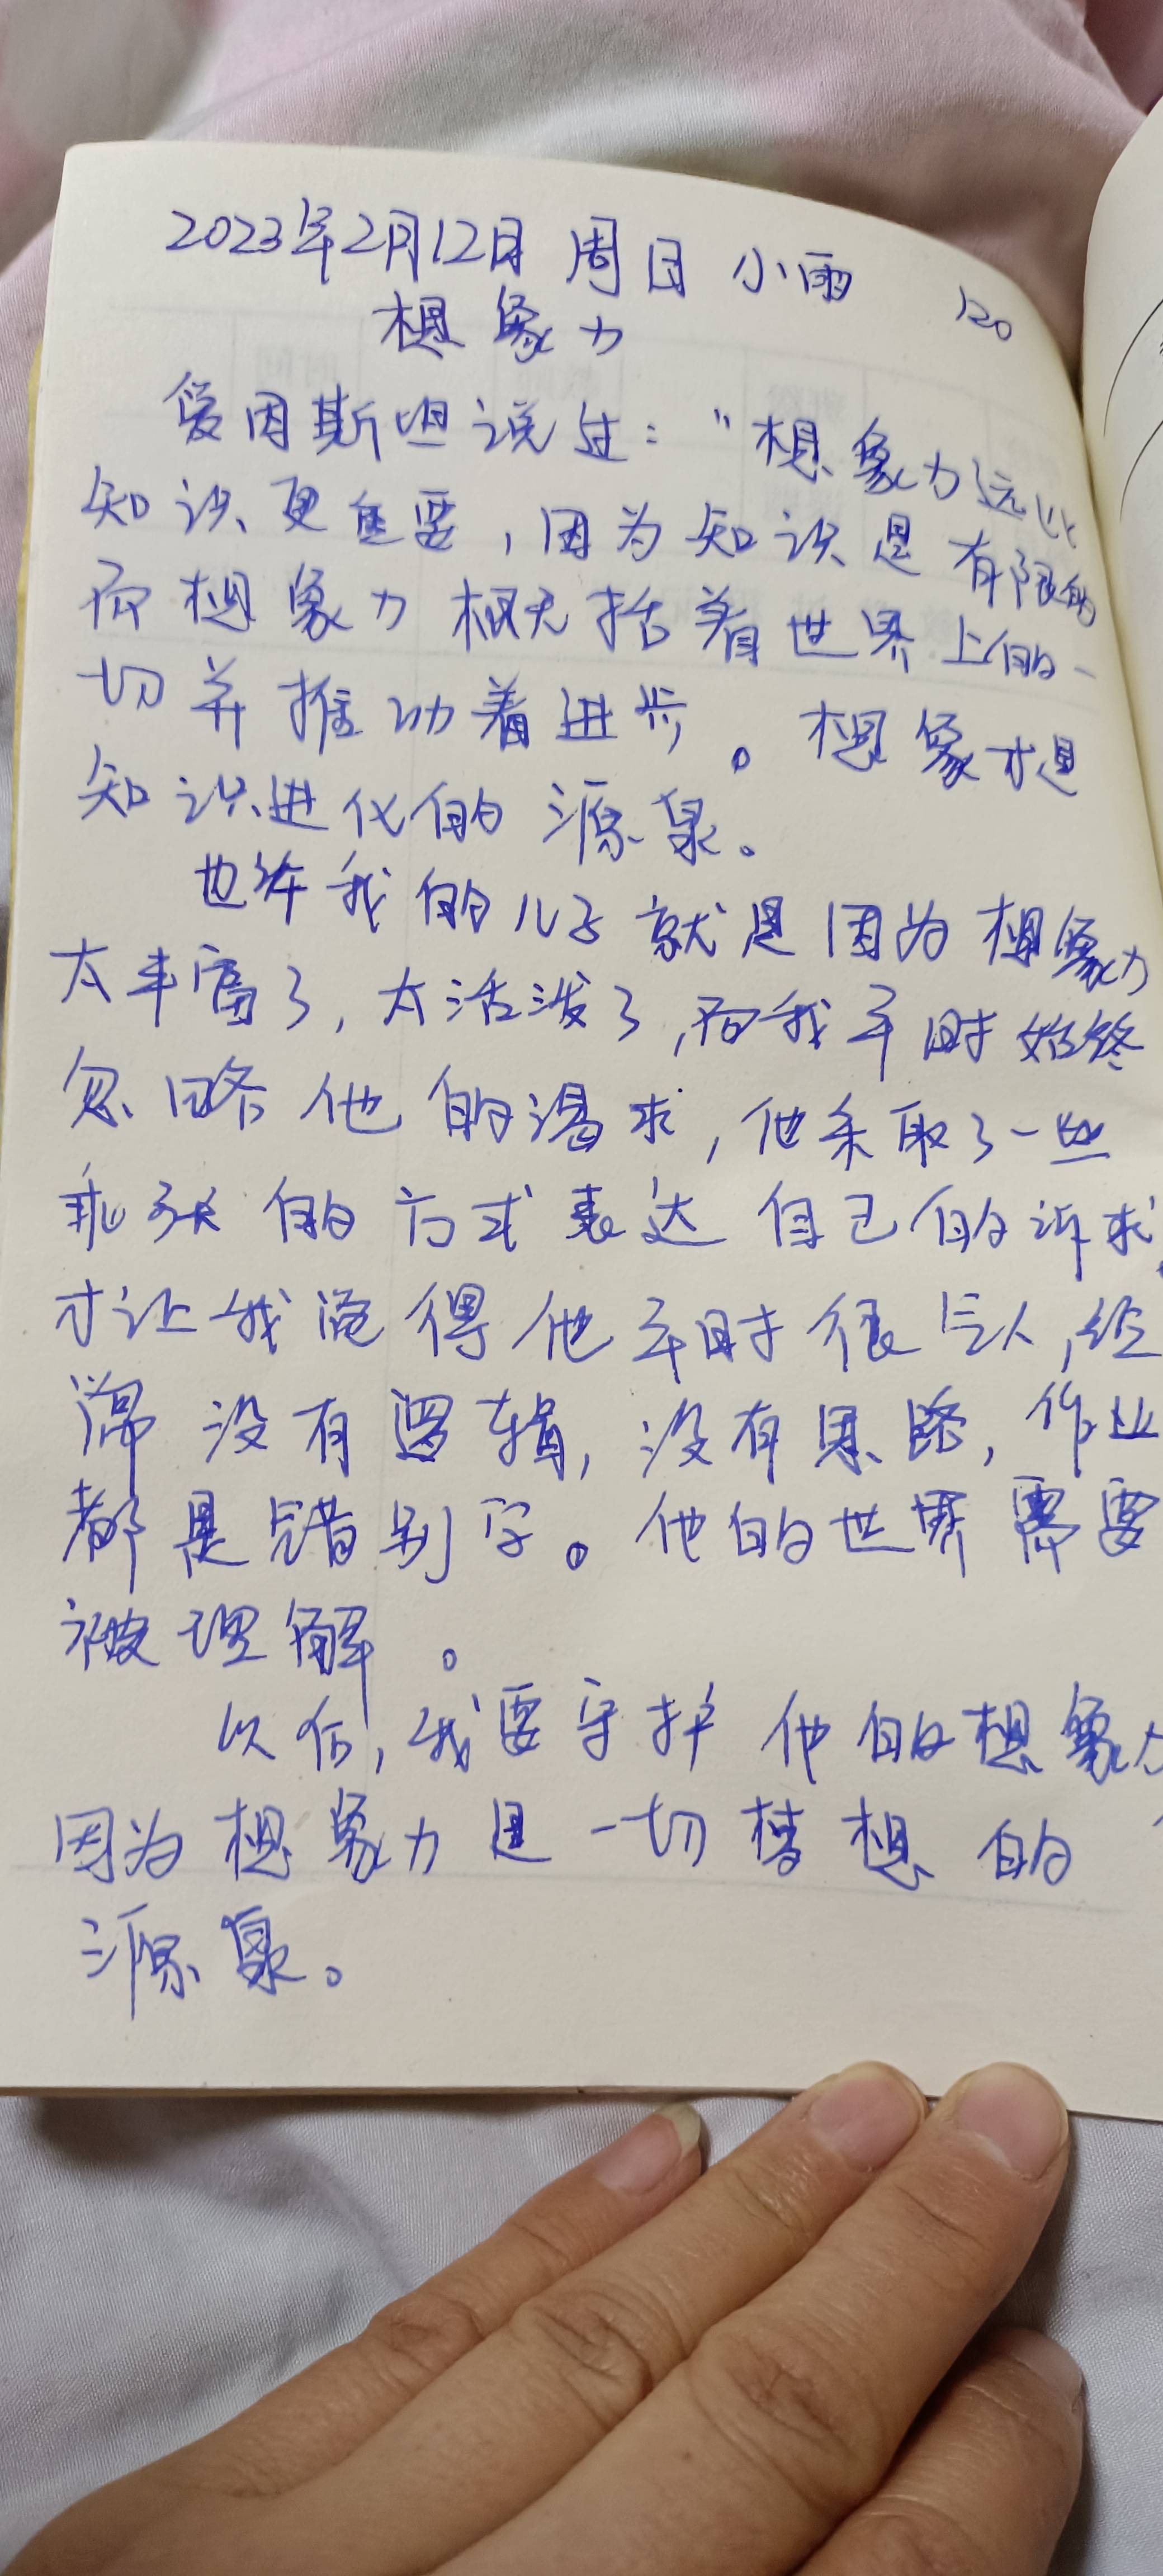 2023年2月12日 周日 小雨 120
想象力
爱因斯坦说过："想象力远比
知识更重要,因为知识是有限的
而想象力概括着世界上的一
切并推动着进步。想象才是
知识进化的源泉。
也许我的儿子就是因为想象力
太丰富了,太活泼了,而我平时始终
忽略他的渴求,他采取了一些
乖张的方式表达自己的诉求,
才让我觉得他平时很气人,经
常没有逻辑,没有思路,作业
都是错别字。他的世界需要
被理解。
以后,我要守护他的想象力
因为想象力是一切梦想的
源泉。